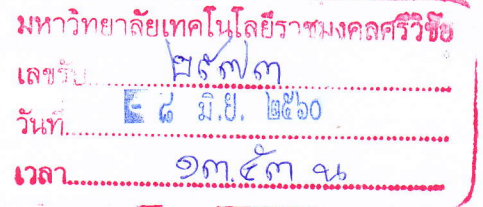 มหาวิทยาลัยเทคโนโลยีราชมงคลศรีวิชัย
เลขรับ ๒๕๗๓
วันที่ - ๘ มิ.ย. ๒๕๖๐
เวลา ๑๓.๕๓ น